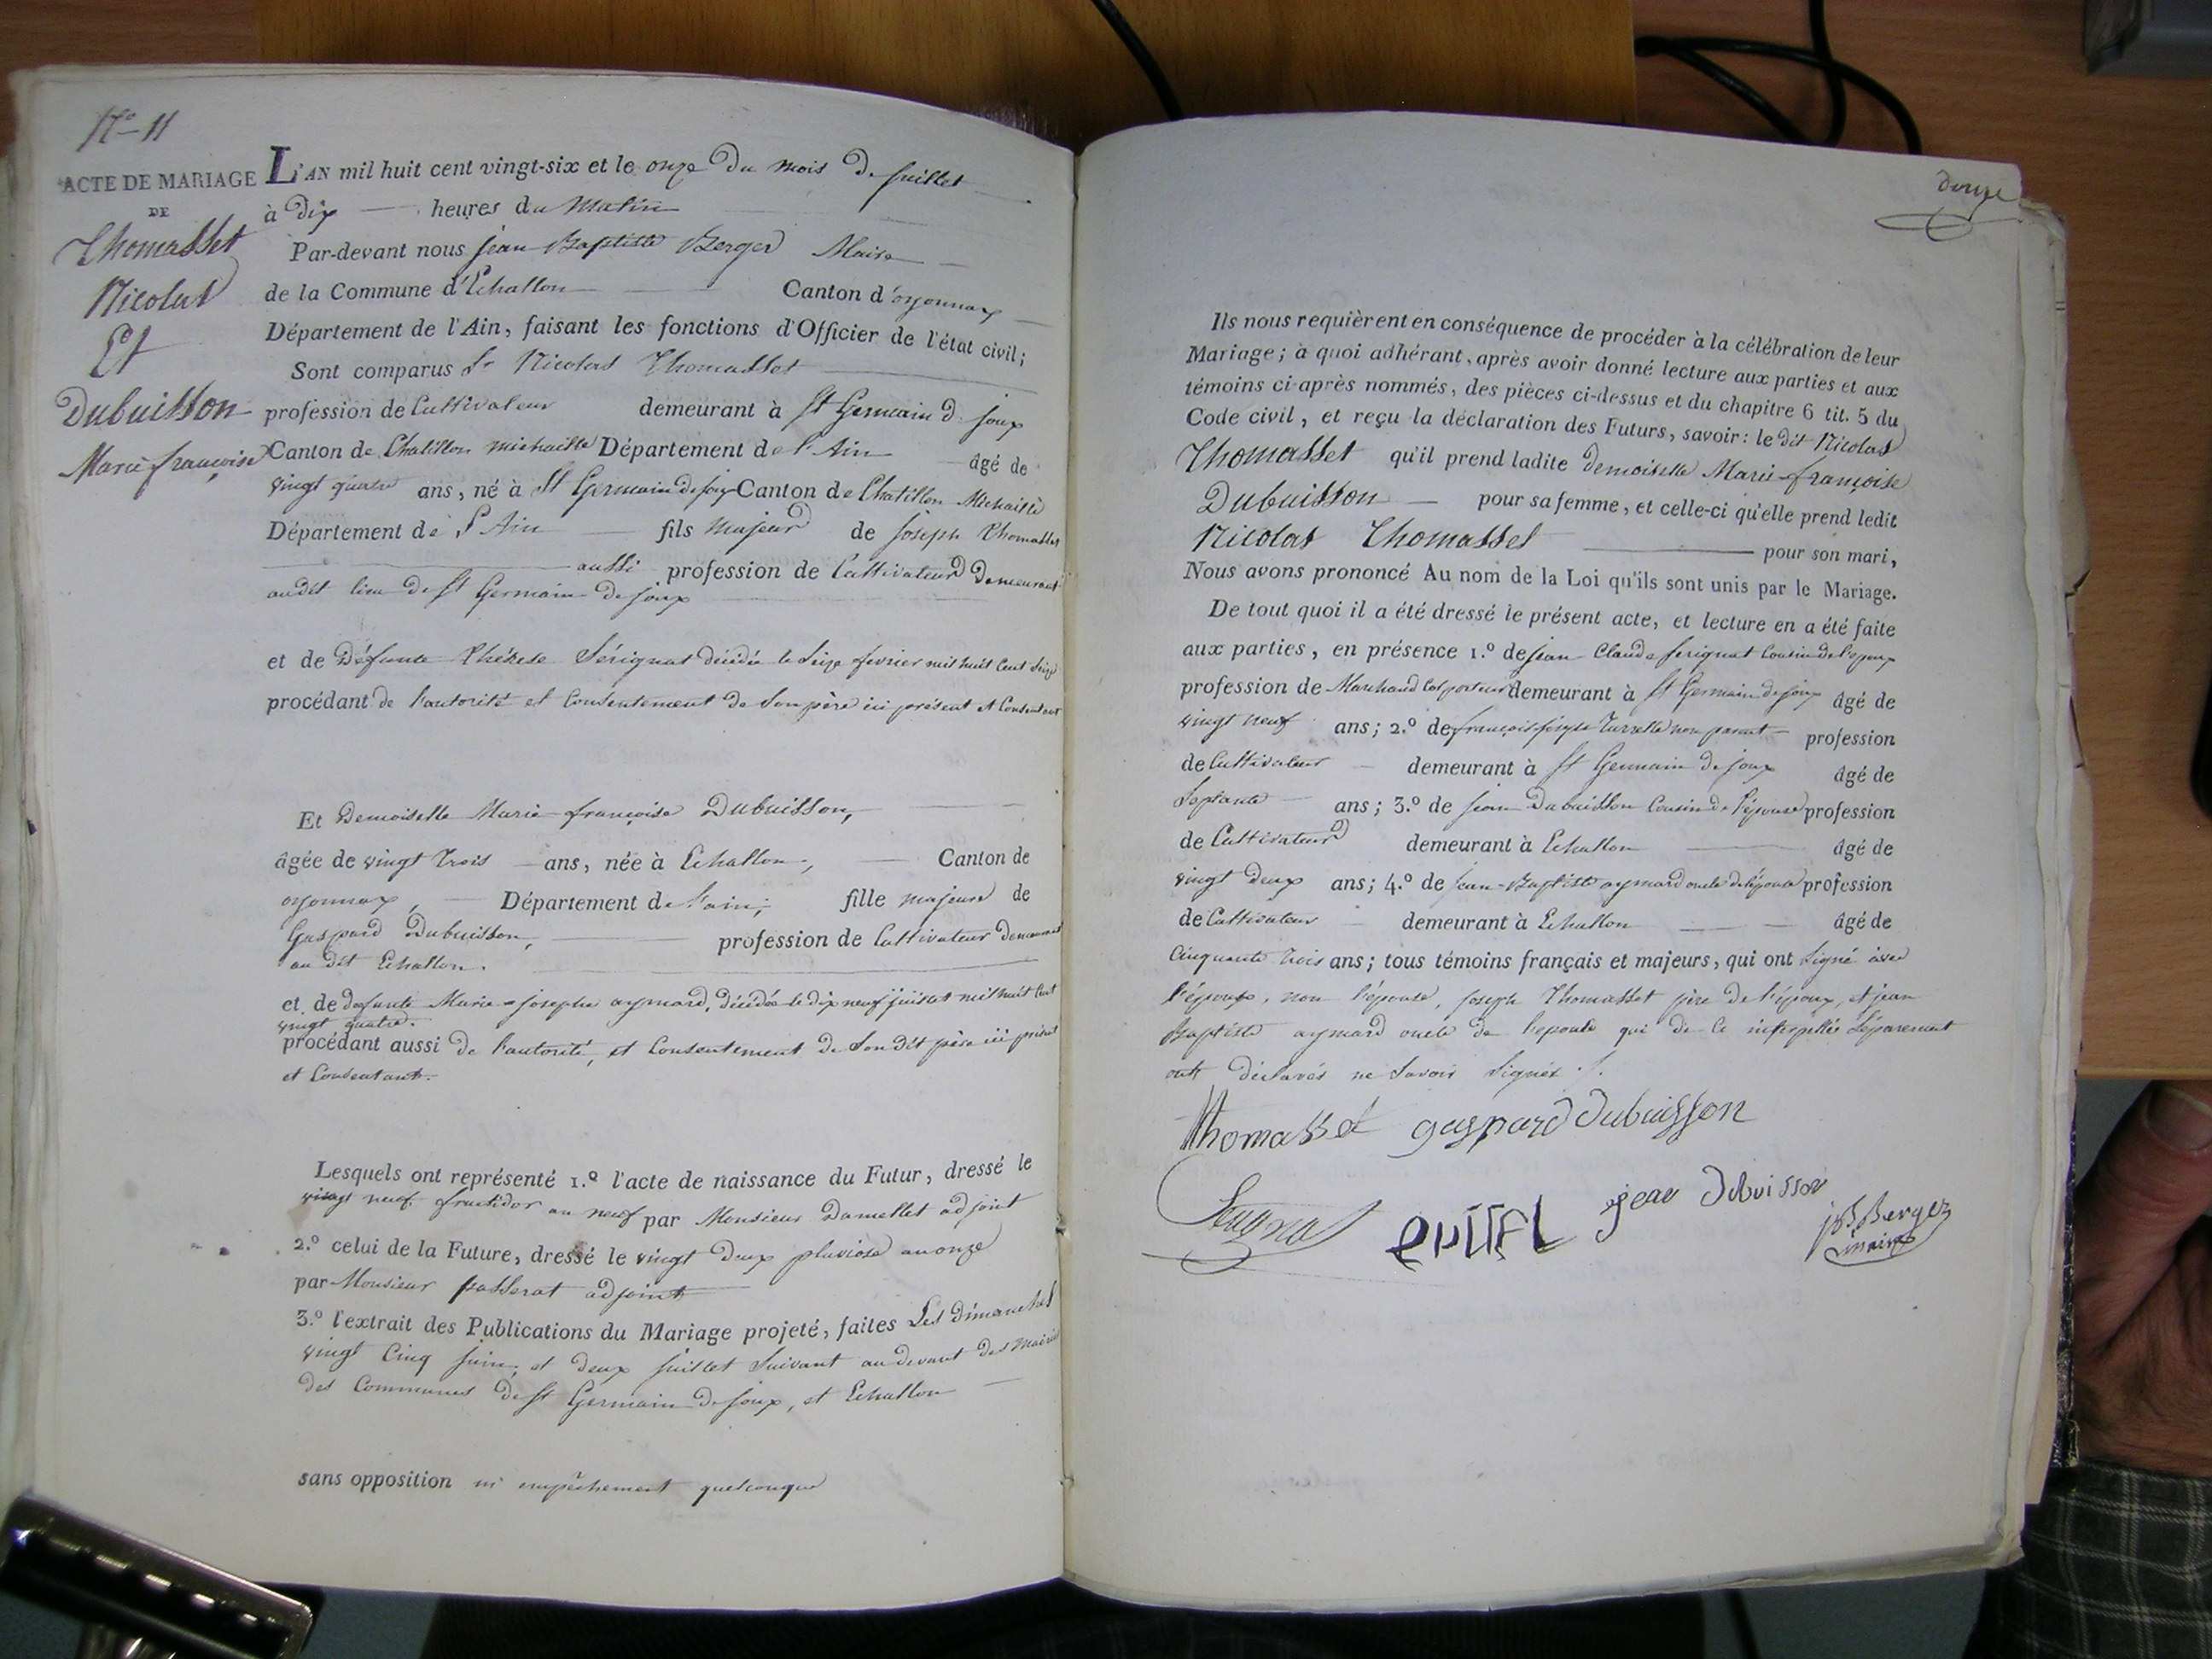 N.º 11
ACTE DE MARIAGE
DE
Thomasset
Nicolas
Et
Dubuisson
Marie françoise
L'AN mil huit cent vingt-six et le onze du mois de juillet
à Dix heures du Matin
Par-devant nous jean Baptiste Berger Maire
de la Commune d'Echallon Canton d'oyonnax
Département de l'Ain, faisant les fonctions d'Officier de l'état civil;
Sont comparus Sr Nicolas Thomasset
profession de Cultivateur demeurant à St Germain de joux
Canton de Chatillon michaille Département de l'Ain âgé de
vingt quatre ans, né à St Germain de joux Canton de Chatillon Michaille
Département de l'Ain fils majeur de joseph Thomasset
aussi profession de Cultivateur demeurant
audit lieu de St Germain de joux
et de Défunte Thérèse Sérignat décédée le Seize fevrier mil huit Cent Seize
procédant de l'autorité et Consentement de Son père ici présent et Consentant
Et Demoiselle Marie françoise Dubuisson,
âgée de vingt Trois ans, née à Echallon, Canton de
oyonnax, Département de l'ain; fille majeure de
Gaspard Dubuisson, profession de Cultivateur demeurant
au dit Echallon.
et de defunte Marie-josephe aymard, décédée le dix neuf juillet mil huit Cent
vingt quatre.
procédant aussi de l'autorité, et Consentement de Son dit père ici présent
et Consentant.
Lesquels ont représenté 1.º l'acte de naissance du Futur, dressé le
vingt neuf fructidor an neuf par Monsieur Damellet adjoint
2.º celui de la Future, dressé le vingt Deux pluviose an onze
par Monsieur passerat adjoint
3.º l'extrait des Publications du Mariage projeté, faites Les dimanches
vingt Cinq juin, et deux juillet Suivant au devant des mairies
des Communes de St Germain de joux, et Echallon
sans opposition ni empêchement quelconque
douze
Ils nous requièrent en conséquence de procéder à la célébration de leur
Mariage; à quoi adhérant, après avoir donné lecture aux parties et aux
témoins ci-après nommés, des pièces ci-dessus et du chapitre 6 tit. 5 du
Code civil, et reçu la déclaration des Futurs, savoir: le dit Nicolas
Thomasset qu'il prend ladite demoiselle Marie-françoise
Dubuisson pour sa femme, et celle-ci qu'elle prend ledit
Nicolas Thomasset pour son mari,
Nous avons prononcé Au nom de la Loi qu'ils sont unis par le Mariage.
De tout quoi il a été dressé le présent acte, et lecture en a été faite
aux parties, en présence 1.º de jean Claude Serignat Cousin de l'epoux
profession de Marchand Colporteur demeurant à St Germain de joux âgé de
vingt neuf ans; 2.º de françois joseph non parent profession
de Cultivateur demeurant à St Germain de joux âgé de
Septante ans; 3.º de jean Dubuisson Cousin de l'épouse profession
de Cultivateur demeurant à Echallon âgé de
vingt deux ans; 4.º de jean-Baptiste aymard oncle de l'épouse profession
de Cultivateur demeurant à Echallon âgé de
Cinquante trois ans; tous témoins français et majeurs, qui ont Signé avec
l'époux, non l'épouse, joseph Thomasset père de l'époux, et jean
Baptiste aymard oncle de l'epouse qui de Ce interpellés Séparement
ont déclarés ne Savoir Signer ./.
Thomasset gaspard dubuisson
jean dubuisson
jB Berger
maire